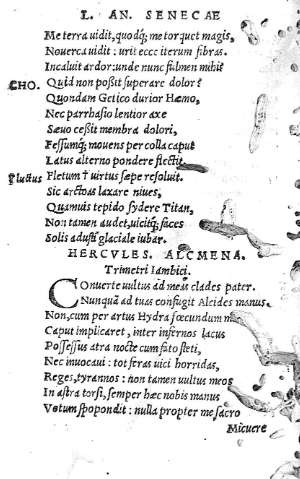 L. AN. SENECAE
Me terra uidit, quodq; me torquet magis,
Nouerca uidit: urit ecce iterum fibras.
Incaluit ardor: unde nunc fulmen mihi?
CHO. Quid non poßit superare dolor?
Quondam Getico durior Hæmo,
Nec parrhasio lentior axe
Sæuo ceßit membra dolori,
Feßumq; mouens per colla caput
Latus alterno pondere flectit.
Fluctus Fletum † uirtus sæpe resoluit.
Sic arctoas laxare niues,
Quamuis tepido sydere Titan,
Non tamen audet, uicitq; faces
Solis adusti glaciale iubar.
HERCVLES. ALCMENA.
Trimetri Iambici.
COnuerte uultus ad meas clades pater.
Nunquã ad tuas confugit Alcides manus.
Non, cum per artus Hydra fœcundum m
Caput implicaret, inter infernos lacus
Poßessus atra nocte cum fato steti,
Nec inuocaui: tot feras uici horridas,
Reges, tyrannos: non tamen uultus meos
In astra torsi, semper hæc nobis manus
Votum spopondit: nulla propter me sacro
Micuere